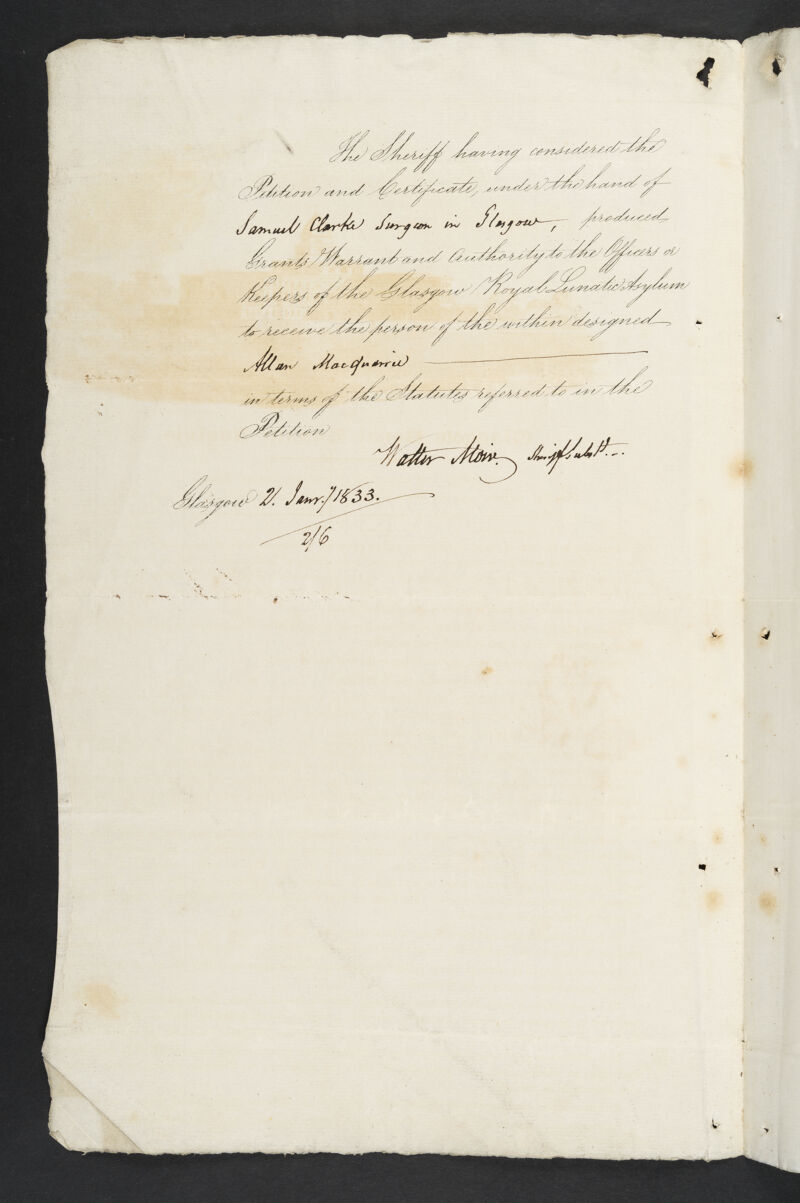 The Sheriff having considered the
Petition and Certificate, under the hand of
Samuel Clarke Surgeon in Glasgow, produced
Grants Warrant and Authority to the Officers or
Keepers of the Glasgow Royal Lunatic Asylum
to receive the person of the within designed
Allan Macquarrie
in terms of the Statutes referred to in the
Petition
Walter Moir. Sheriff Subst.
Glasgow 21. Janry 1833.
2/6